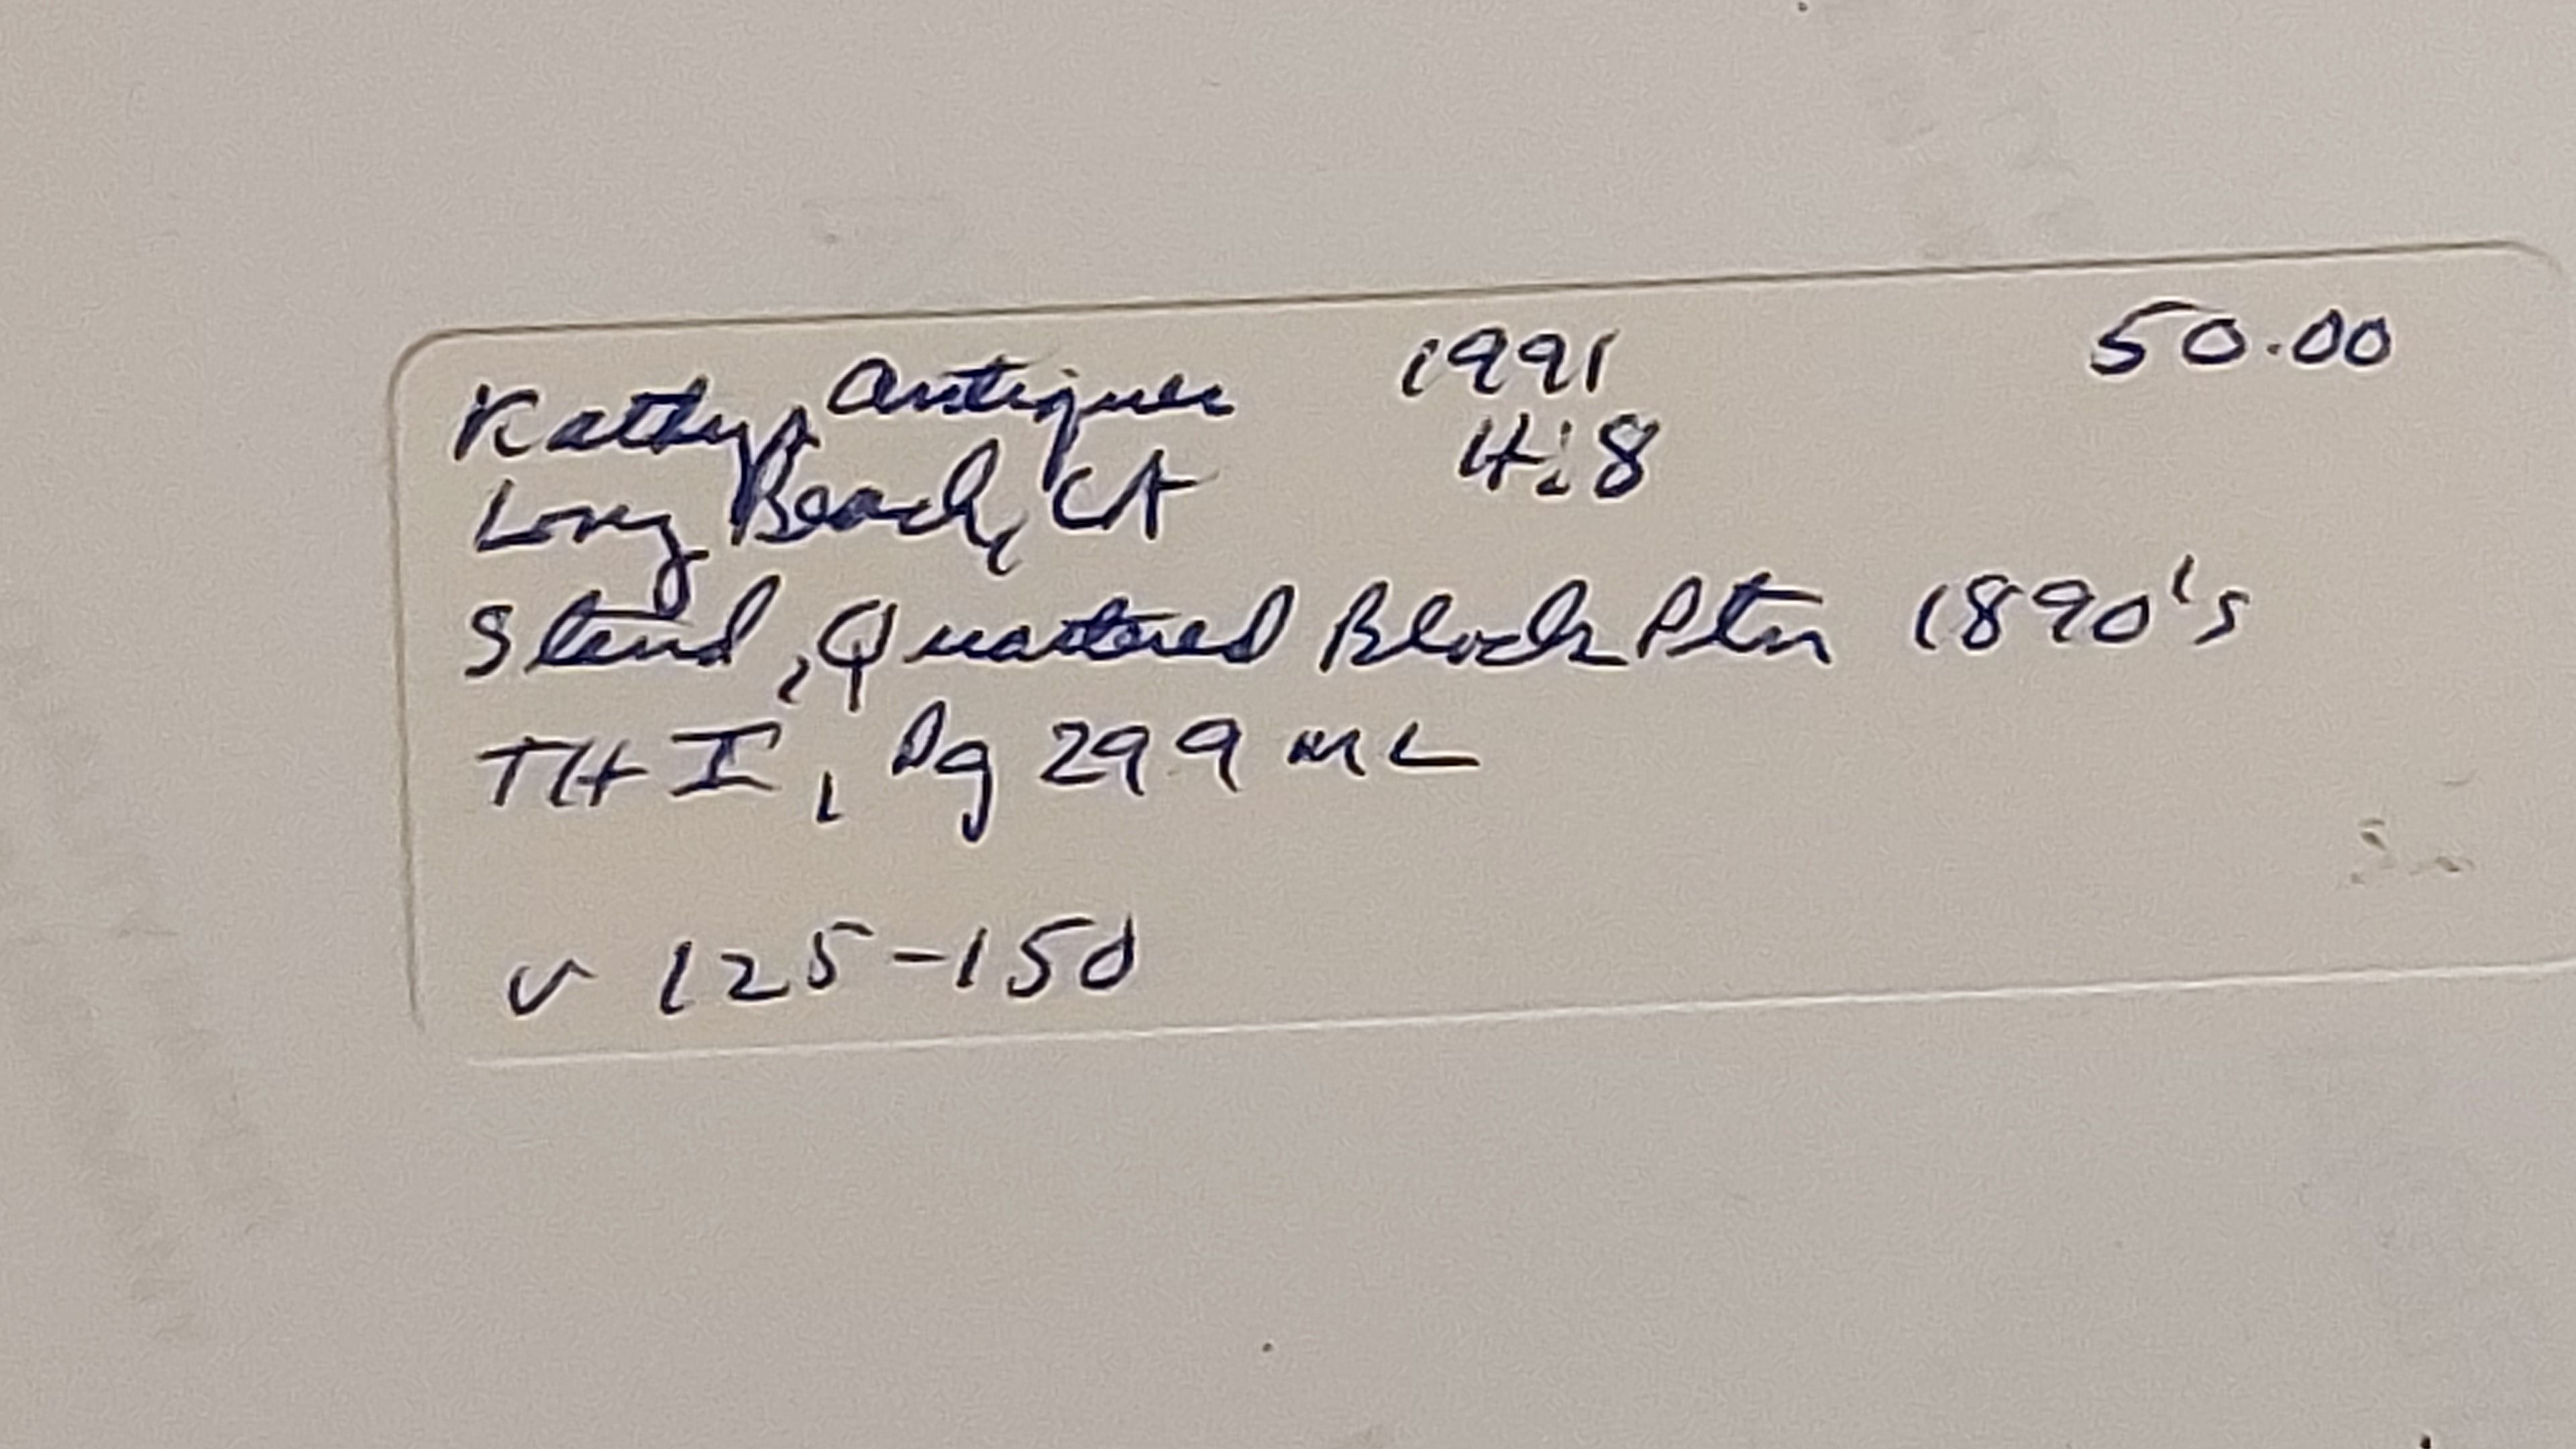 Kathys Antiques 1991 50.00
Long Beach, CA H:8
Stand, Quartered Block Ptn 1890's
TH I, Pg 299 ML
v 125-150